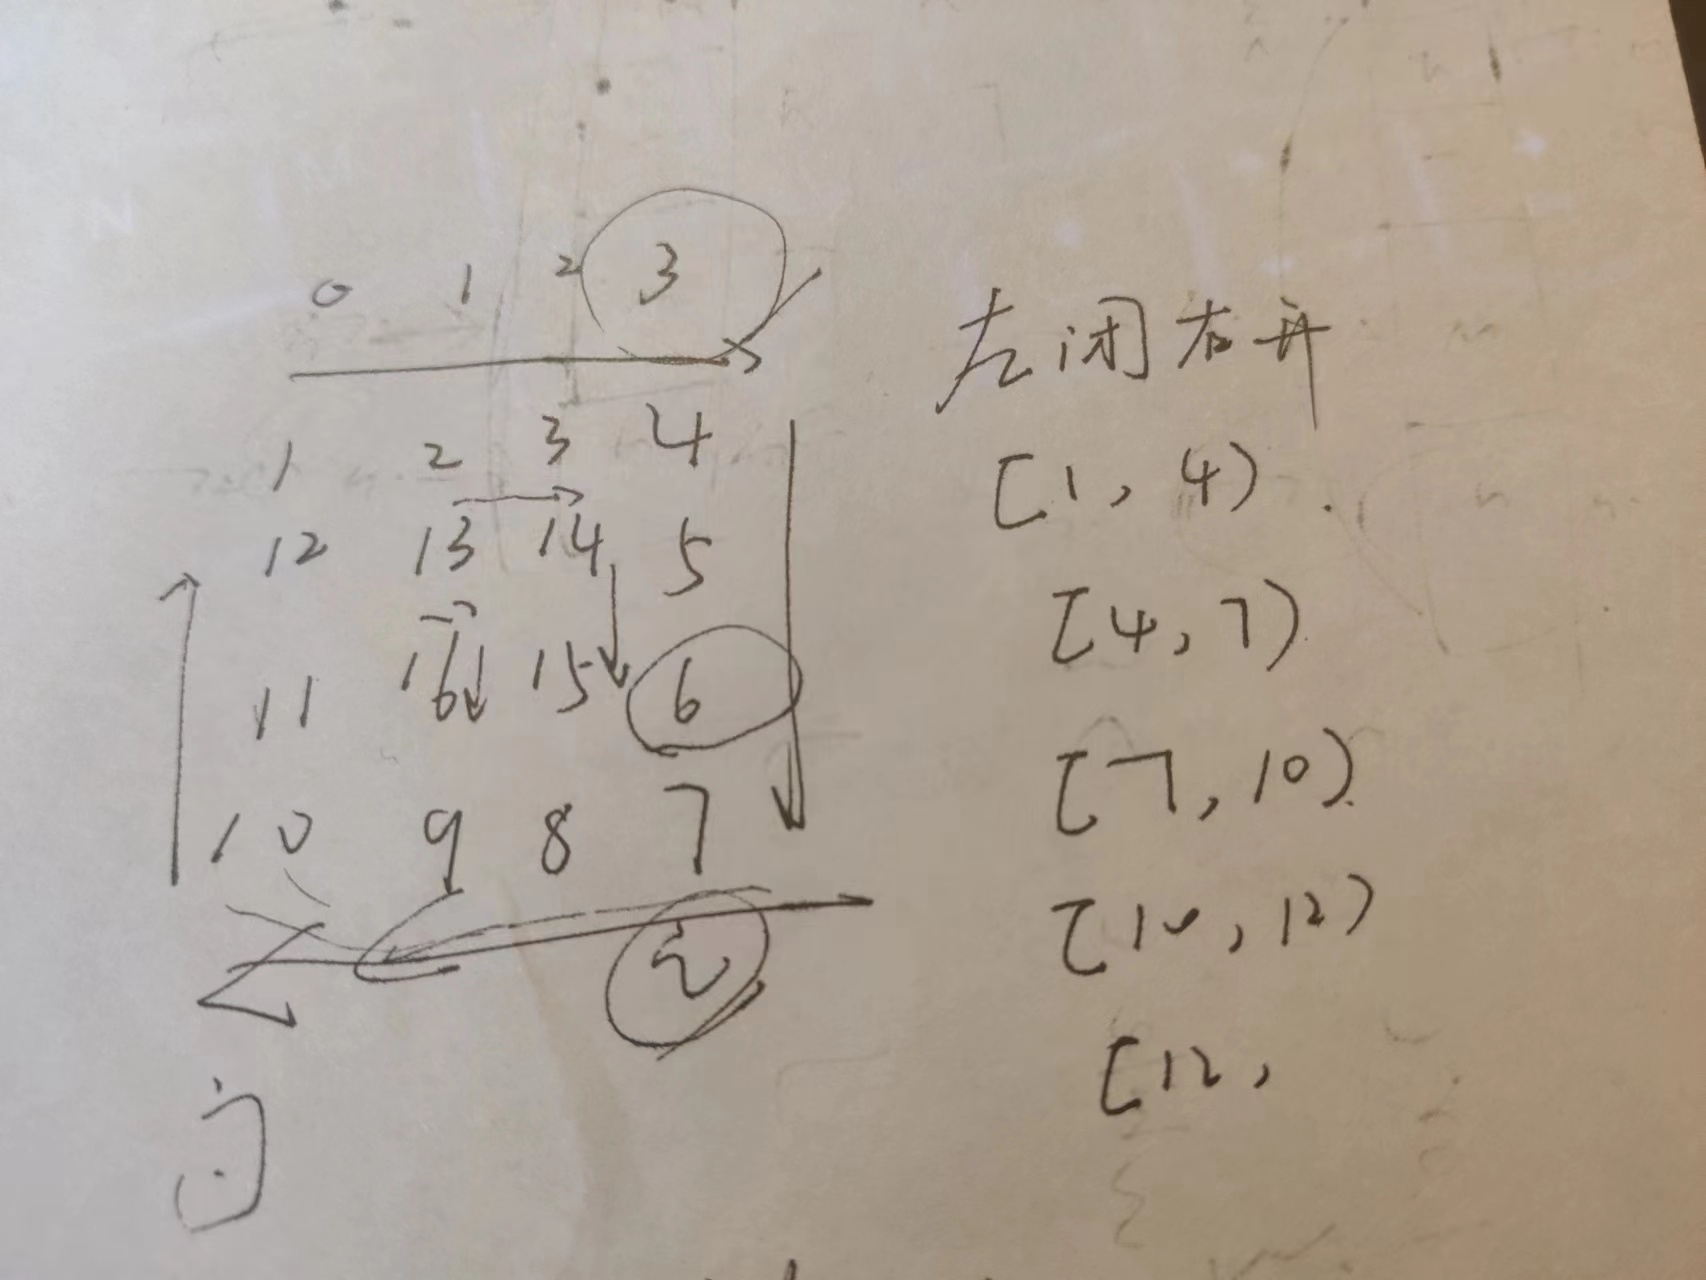 0 1 2 3
1 2 3 4
12 13 14 5
11 16 15 6
10 9 8 7
i
j
左闭右开
[1, 4)
[4, 7)
[7, 10)
[10, 12)
[12,